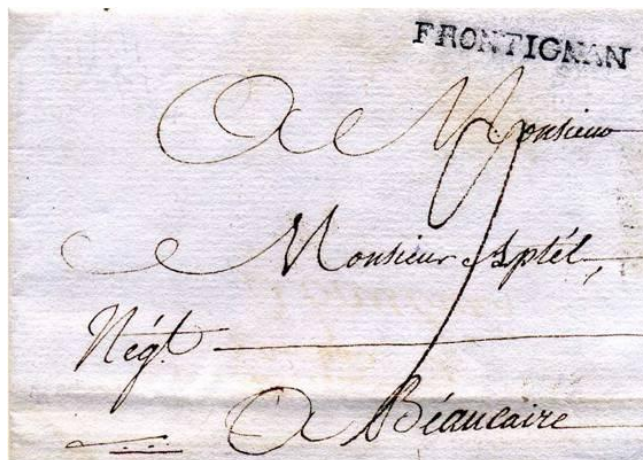 FRONTIGNAN
A Monsieur
Monsieur
Négt.
A Béaucaire